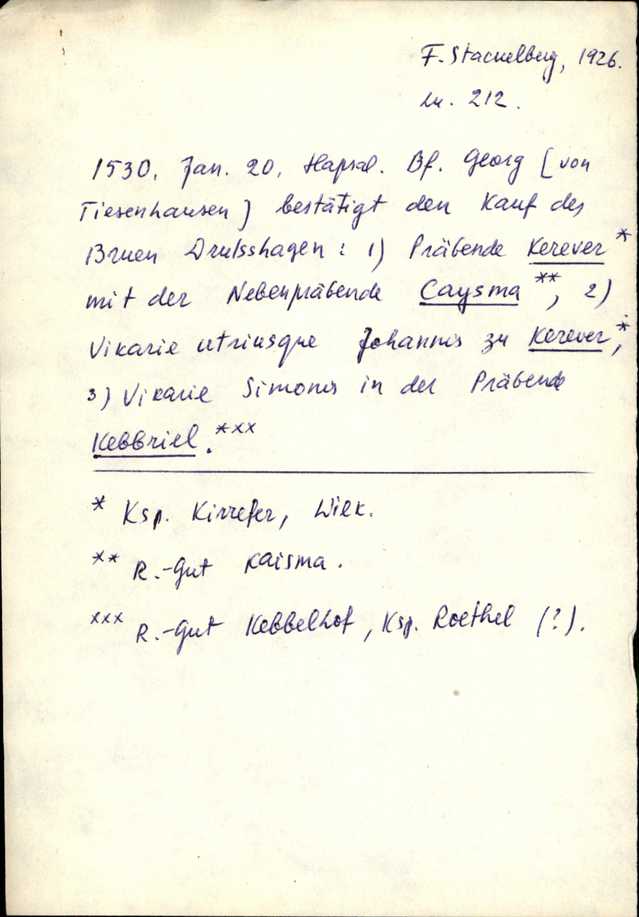 F. Stackelberg, 1926.
Lu. 212.
1530, Jan. 20, Hapsal. Bf. Georg [von
Tiesenhausen] bestätigt den Kauf des
Bruen Drulsshagen: 1) Präbende Kerever*
mit der Nebenpräbende Caysma**, 2)
Vikarie utriusque Johannis zu Kerever,*
3) Vikarie Simonis in der Präbende
Kebbriel.***
* Ksp. Kirrefer, Wiek.
** R.-Gut Kaisma.
*** R.-Gut Kebbelhof, Ksp. Roethel (?).